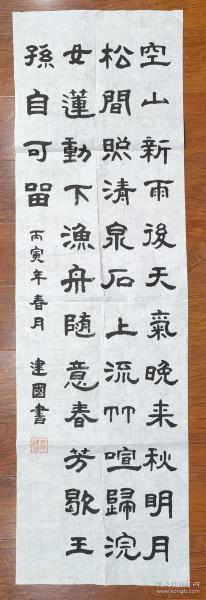 空山新雨後天氣晚来秋明月
松間照清泉石上流竹喧歸浣
女蓮動下漁舟随意春芳歇王
孫自可留
丙寅年春月 建國書